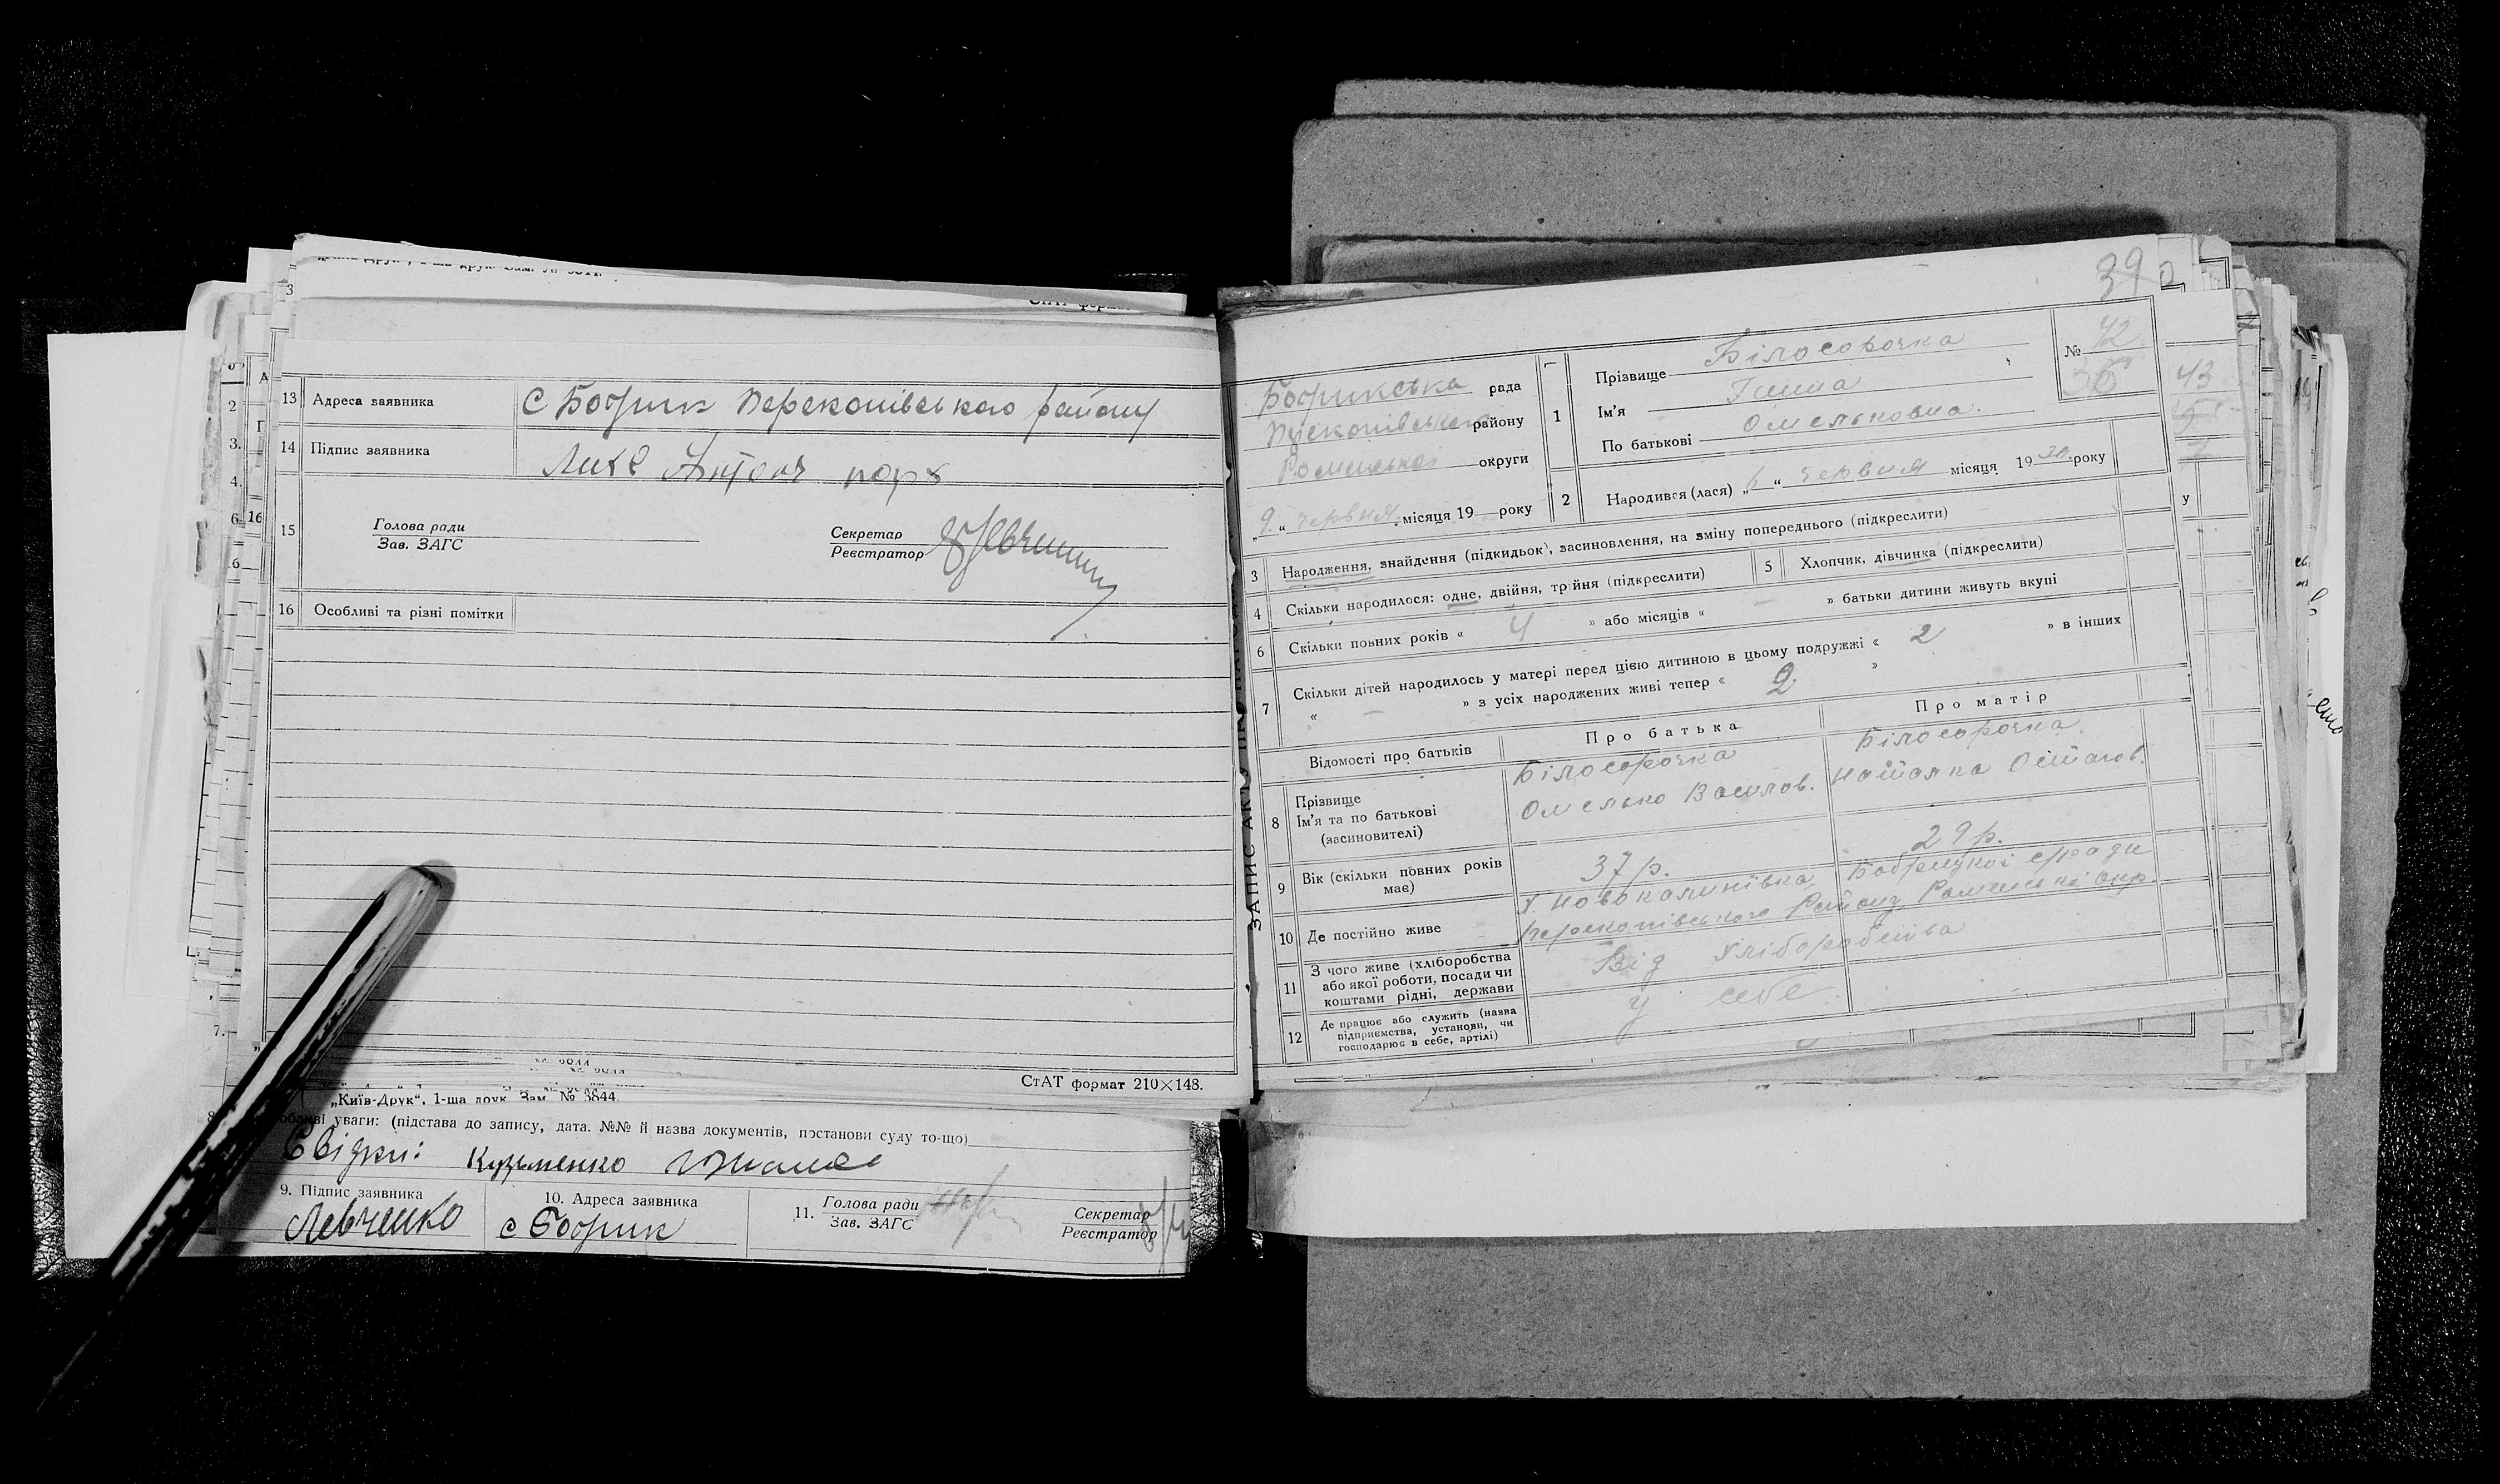 13 Адреса заявника С Бобрик Перекопівського району
14 Підпис заявника Лихо Антон
15 Голова ради
Зав. ЗАГС
Секретар
Реєстратор
16 Особливі та різні помітки
СтАТ формат 210×148.
„Київ-Друк“, 1-ша друк. Зам. № 3844.
уваги: (підстава до запису, дата. №№ й назва документів, постанови суду то-що)
Свідки: Кузьменко
9. Підпис заявника
Левченко
10. Адреса заявника
с Бобрик
11. Голова ради
Зав. ЗАГС
Секретар
Реєстратор
39
Бобрикська рада
Перекопівського району
Роменської округи
„9“ червня місяця 19 року
1
Прізвище Білосорочка
Ім'я Ганна
По батькові Омельковна.
№ 42
43
2 Народився (лася) „6“ червня місяця 1930 року
3 Народження, знайдення (підкидьок), засиновлення, на зміну попереднього (підкреслити)
4 Скільки народилося: одне, двійня, трійня (підкреслити)
5 Хлопчик, дівчинка (підкреслити)
6 Скільки повних років « 4 » або місяців « — » батьки дитини живуть вкупі
7 Скільки дітей народилось у матері перед цією дитиною в цьому подружжі « 2 » в інших
« — » з усіх народжених живі тепер « 2 »
Відомості про батьків
Про батька
Про матір
8 Прізвище
Ім'я та по батькові
(засиновителі)
Білосорочка
Омелько Васильов.
Білосорочка
Наталка Остапов.
9 Вік (скільки повних років має)
37 р.
29 р.
10 Де постійно живе
х. Новокалинівка Бобрицької с/ради
Перекопівського Району Роменської окр.
11 З чого живе (хліборобства
або якої роботи, посади чи
коштами рідні, держави
Від хліборобства
12 Де працює або служить (назва
підприємства, установи, чи
господарює в себе, артілі)
у себе.